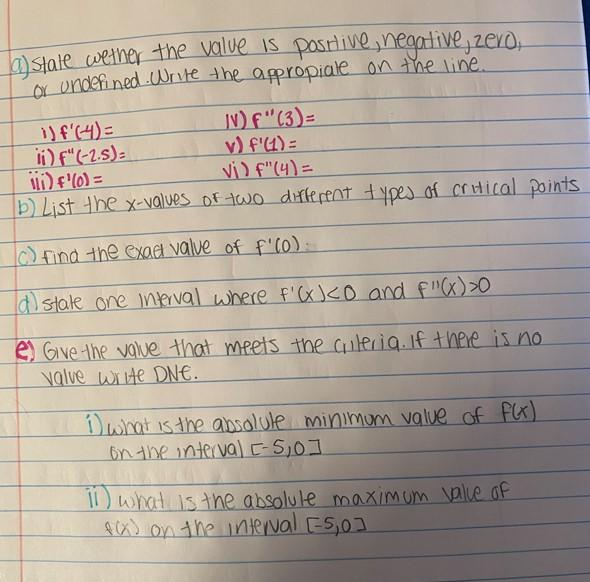 a) State wether the value is positive, negative, zero,
or undefined. Write the appropiate on the line.
i) f'(-4)= iv) f''(3)=
ii) f''(-2.5)= v) f'(1)=
iii) f'(0)= vi) f''(4)=
b) List the x-values of two different types of critical points
c) find the exact value of f'(0).
d) state one interval where f'(x)<0 and f''(x)>0
e) Give the value that meets the criteria. If there is no
value write DNE.
i) what is the absolute minimum value of f(x)
on the interval [-5,0]
ii) what is the absolute maximum value of
f(x) on the interval [-5,0]